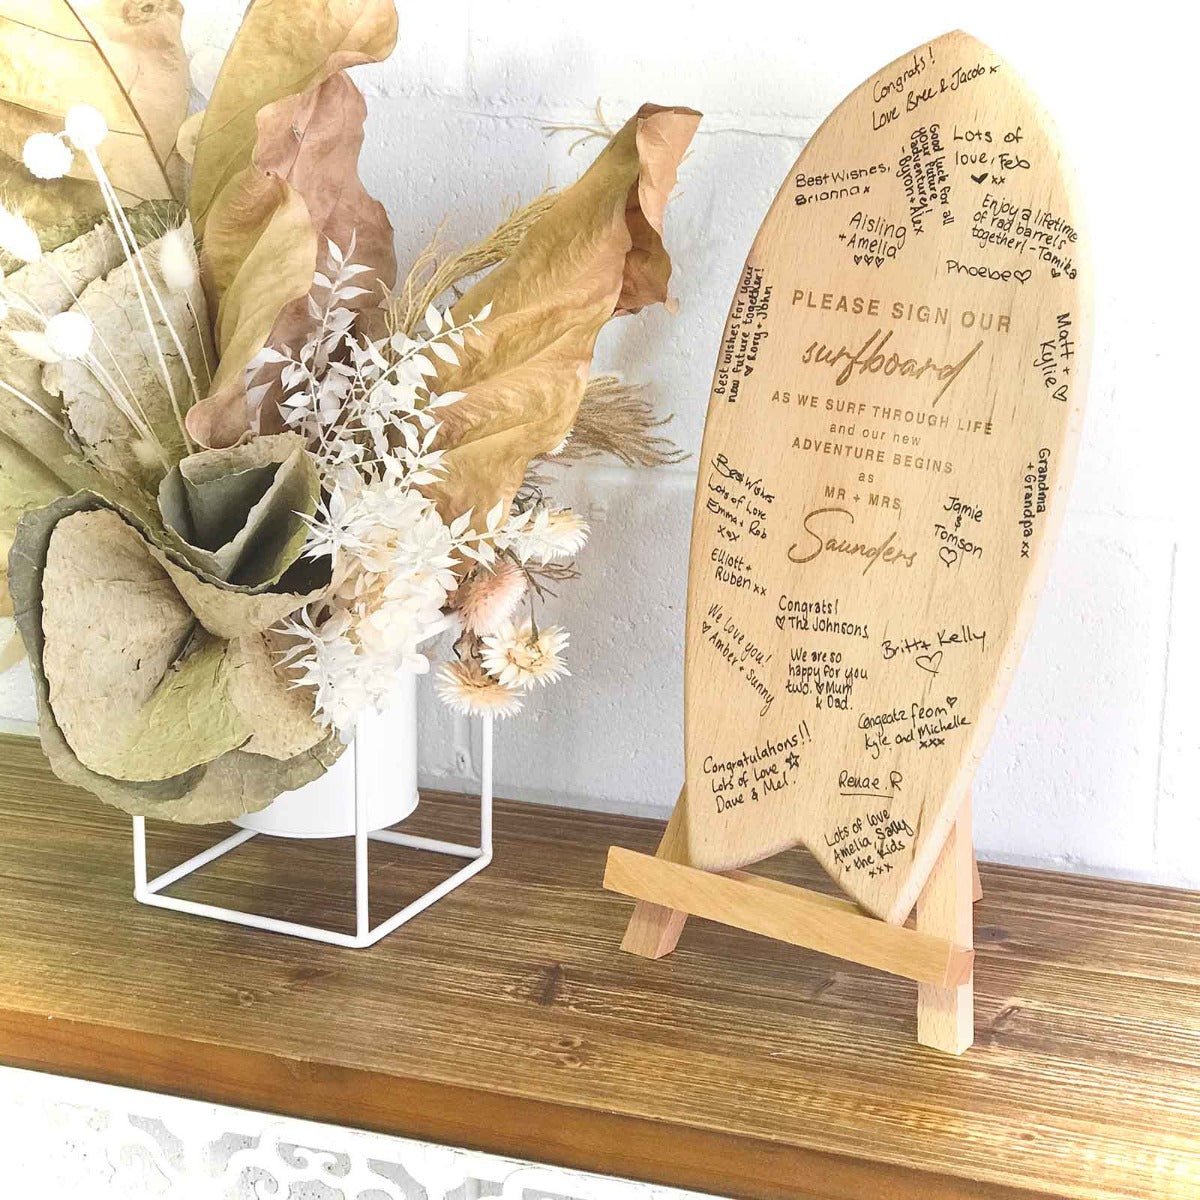 Congrats!
Love Bree & Jacob x
Lots of
love, Feb
xx
Good luck for all
your future
adventures!
- Byron + Alex
Best Wishes,
Brianna x
Aisling
+ Amelia
Enjoy a lifetime
of rad barrels
together! - Tamika
Phoebe
Best wishes for your
new future together!
Rory + John
PLEASE SIGN OUR
surfboard
AS WE SURF THROUGH LIFE
and our new
ADVENTURE BEGINS
as
MR + MRS
Saunders
Matt +
Kylie
Grandma
+ Grandpa xx
Best Wishes
Lots of Love
Emma + Rob
xox
Jamie
&
Tomson
Elliott +
Ruben xx
We love you!
Amber + Sunny
Congrats!
The Johnsons.
We are so
happy for you
two. Mum
& Dad.
Britt Kelly
Congratz from
Kyle and Michelle
xxx
Congratulations!!
Lots of Love
Dave & Mel.
Renae. R
Lots of love
Amelia, Sally
+ the Kids
xxx